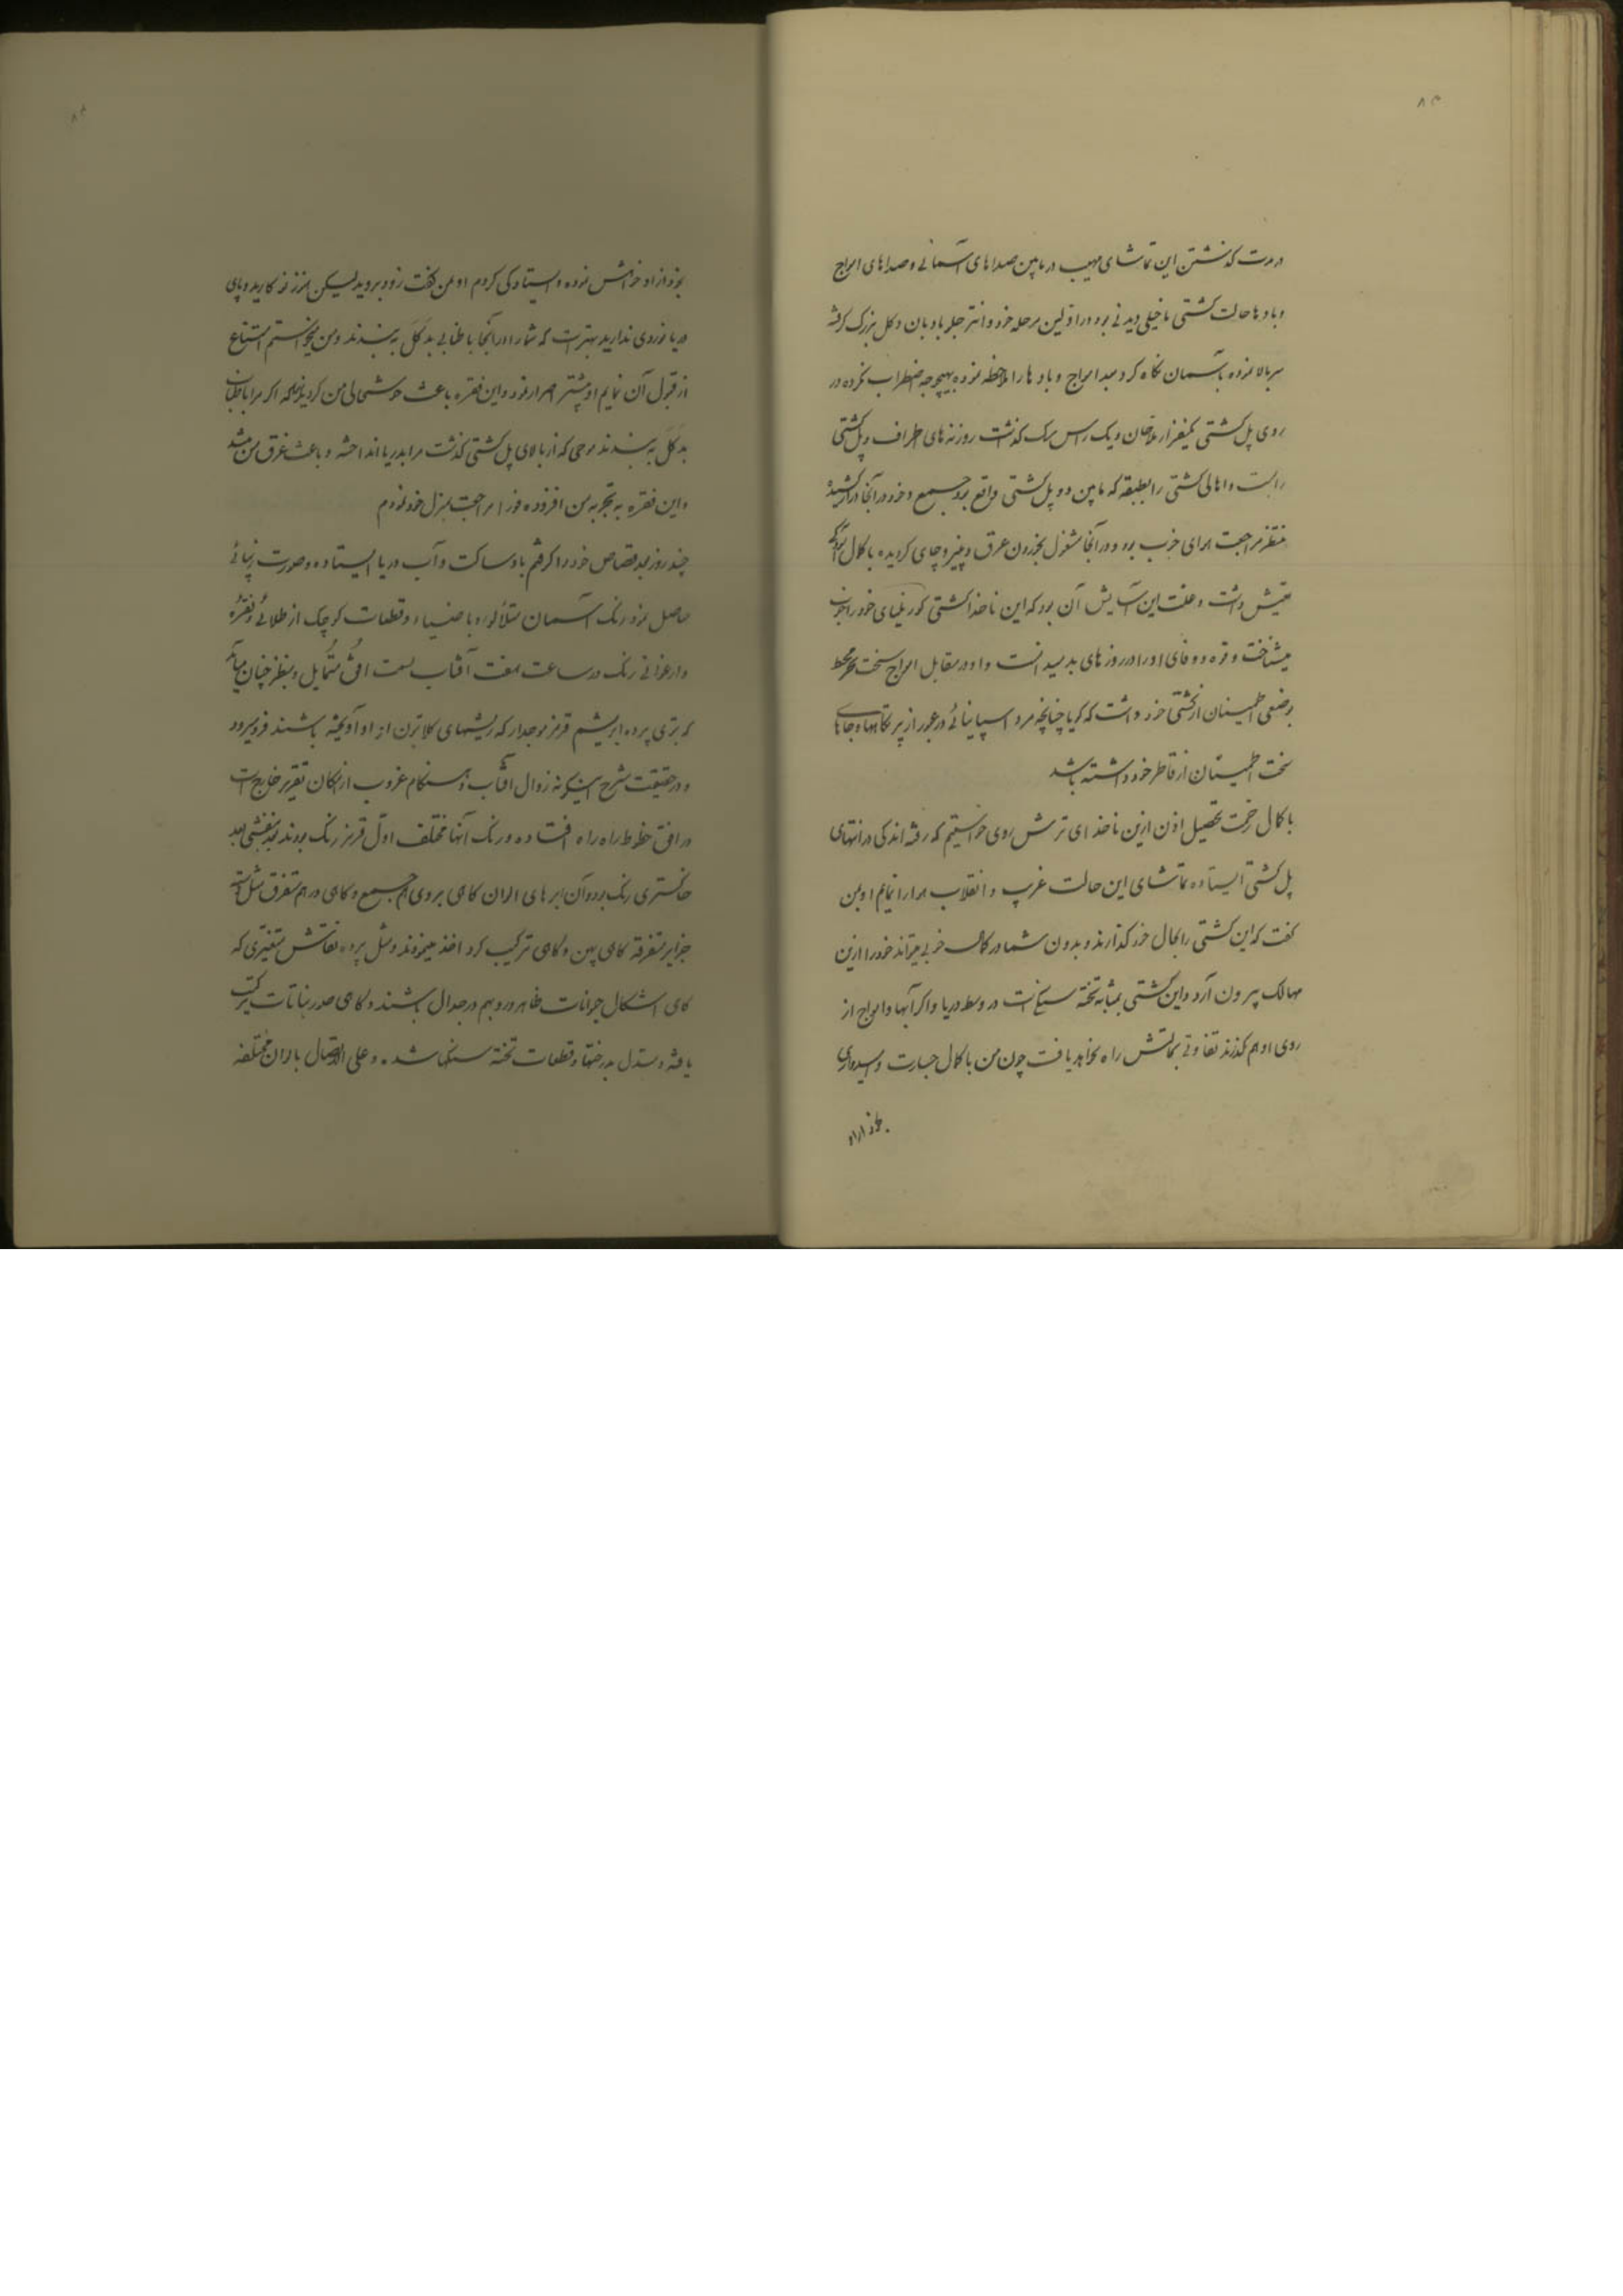 ۸۳
در مدت گذشتن این تماشای مهیب در مابین صداهای آسمانی و صداهای امواج
و بادها حالت کشتی ما خیلی دیدنی بود در اولین مرحله خود وانتر جلو بادبان دکل بزرگ گرفته
سر بالا نموده بآسمان نگاه کرد بعد امواج و بادها را ملاحظه نموده بهیچوجه اضطراب نکرده در
روی پل کشتی یکنفر از ملاحان و یک راس سگ گذاشت روزنه های اطراف و پل کشتی
را بست و اهالی کشتی را بطبقه که مابین دو پل کشتی واقع بود جمیع و خود در آنجا دراز کشیده
منتظر مراجعت هوای خوب بود و در آنجا مشغول بخوردن عرق و پنیر و چای گردیده با کمال آسودگی
عیش داشت و علت این آسایش آن بود که این ناخدا کشتی کورنلیای خود را خوب
میشناخت و قوه و وفای او را در روزهای بد میدانست و او در مقابل امواج سخت بحر محیط
بوضعی اطمینان از کشتی خود داشت که گویا چنانچه مرد اسپانیائی در عبور از پرتگاهها و جاهای
سخت اطمینان از قاطر خود داشته باشد
با کمال زحمت تحصیل اذن ازین ناخدای ترش روی خواستیم که رفته اندکی در انتهای
پل کشتی ایستاده تماشای این حالت غریب و انقلاب هوا را نمایم او بمن
گفت که این کشتی را بحال خود گذارند و بدون شما در کمال خوبی میتواند خود را ازین
مهالک بیرون آرد و این کشتی بمثابه تخته سنگی است در وسط دریا و اگر آبها و امواج از
روی او هم گذرند تفاوتی بحالتش راه نخواهد یافت چون من با کمال جسارت و امیدواری
بخود از او
۸۴
بخود از او خواهش نموده و ایستادگی کردم او بمن گفت زود بروید لیکن هنوز نو کارید و پای
دریا نوردی ندارید بهتر است که شما را در آنجا با طنابی بدکل به بندند و من میخواستم امتناع
از قبول آن نمایم او بیشتر اصرار نمود و این فقره باعث خوشحالی من گردید زیرا که اگر مرا با طناب
بدکل به بندند موجی که از بالای پل کشتی گذشت مرا بدریا انداخته و باعث غرق من میشد
و این فقره به تجربه من افزوده فورا مراجعت بمنزل خود نمودم
چند روز بعد قصاص خود را گرفتم باد ساکت و آب دریا ایستاده و صورت زیبائی
حاصل نمود رنگ آسمان متلألؤ و با ضیاء و قطعات کوچک از طلائی و نقره
و ارغوانی رنگ در ساعت هفت آفتاب بسمت افق متمایل و بنظر چنان میآید
که بتوی پرده ابریشم قرمز موجدار که ریشهای کلابتون از او آویخته باشند فرو میرود
و در حقیقت شرح اینگونه زوال آفتاب و هنگام غروب از امکان تقریر خارج است
در افق خطوط راه راه افتاده و رنگ آنها مختلف اول قرمز رنگ بودند بعد بنفش بعد
خاکستری رنگ بود و آن ابرهای الوان گاهی بروی هم جمیع و گاهی در هم متفرق مثل
جزایر متفرقه گاهی پهن و گاهی ترکیب کرد اخذ مینمودند و مثل پرده نقاش متغیری که
گاهی اشکال حیوانات ظاهر و در هم در جدال باشند و گاهی صور نباتات ترکیب
یافته و مبدل بدرختها و قطعات تخته سنگها شده و علی الاتصال بالوان مختلفه